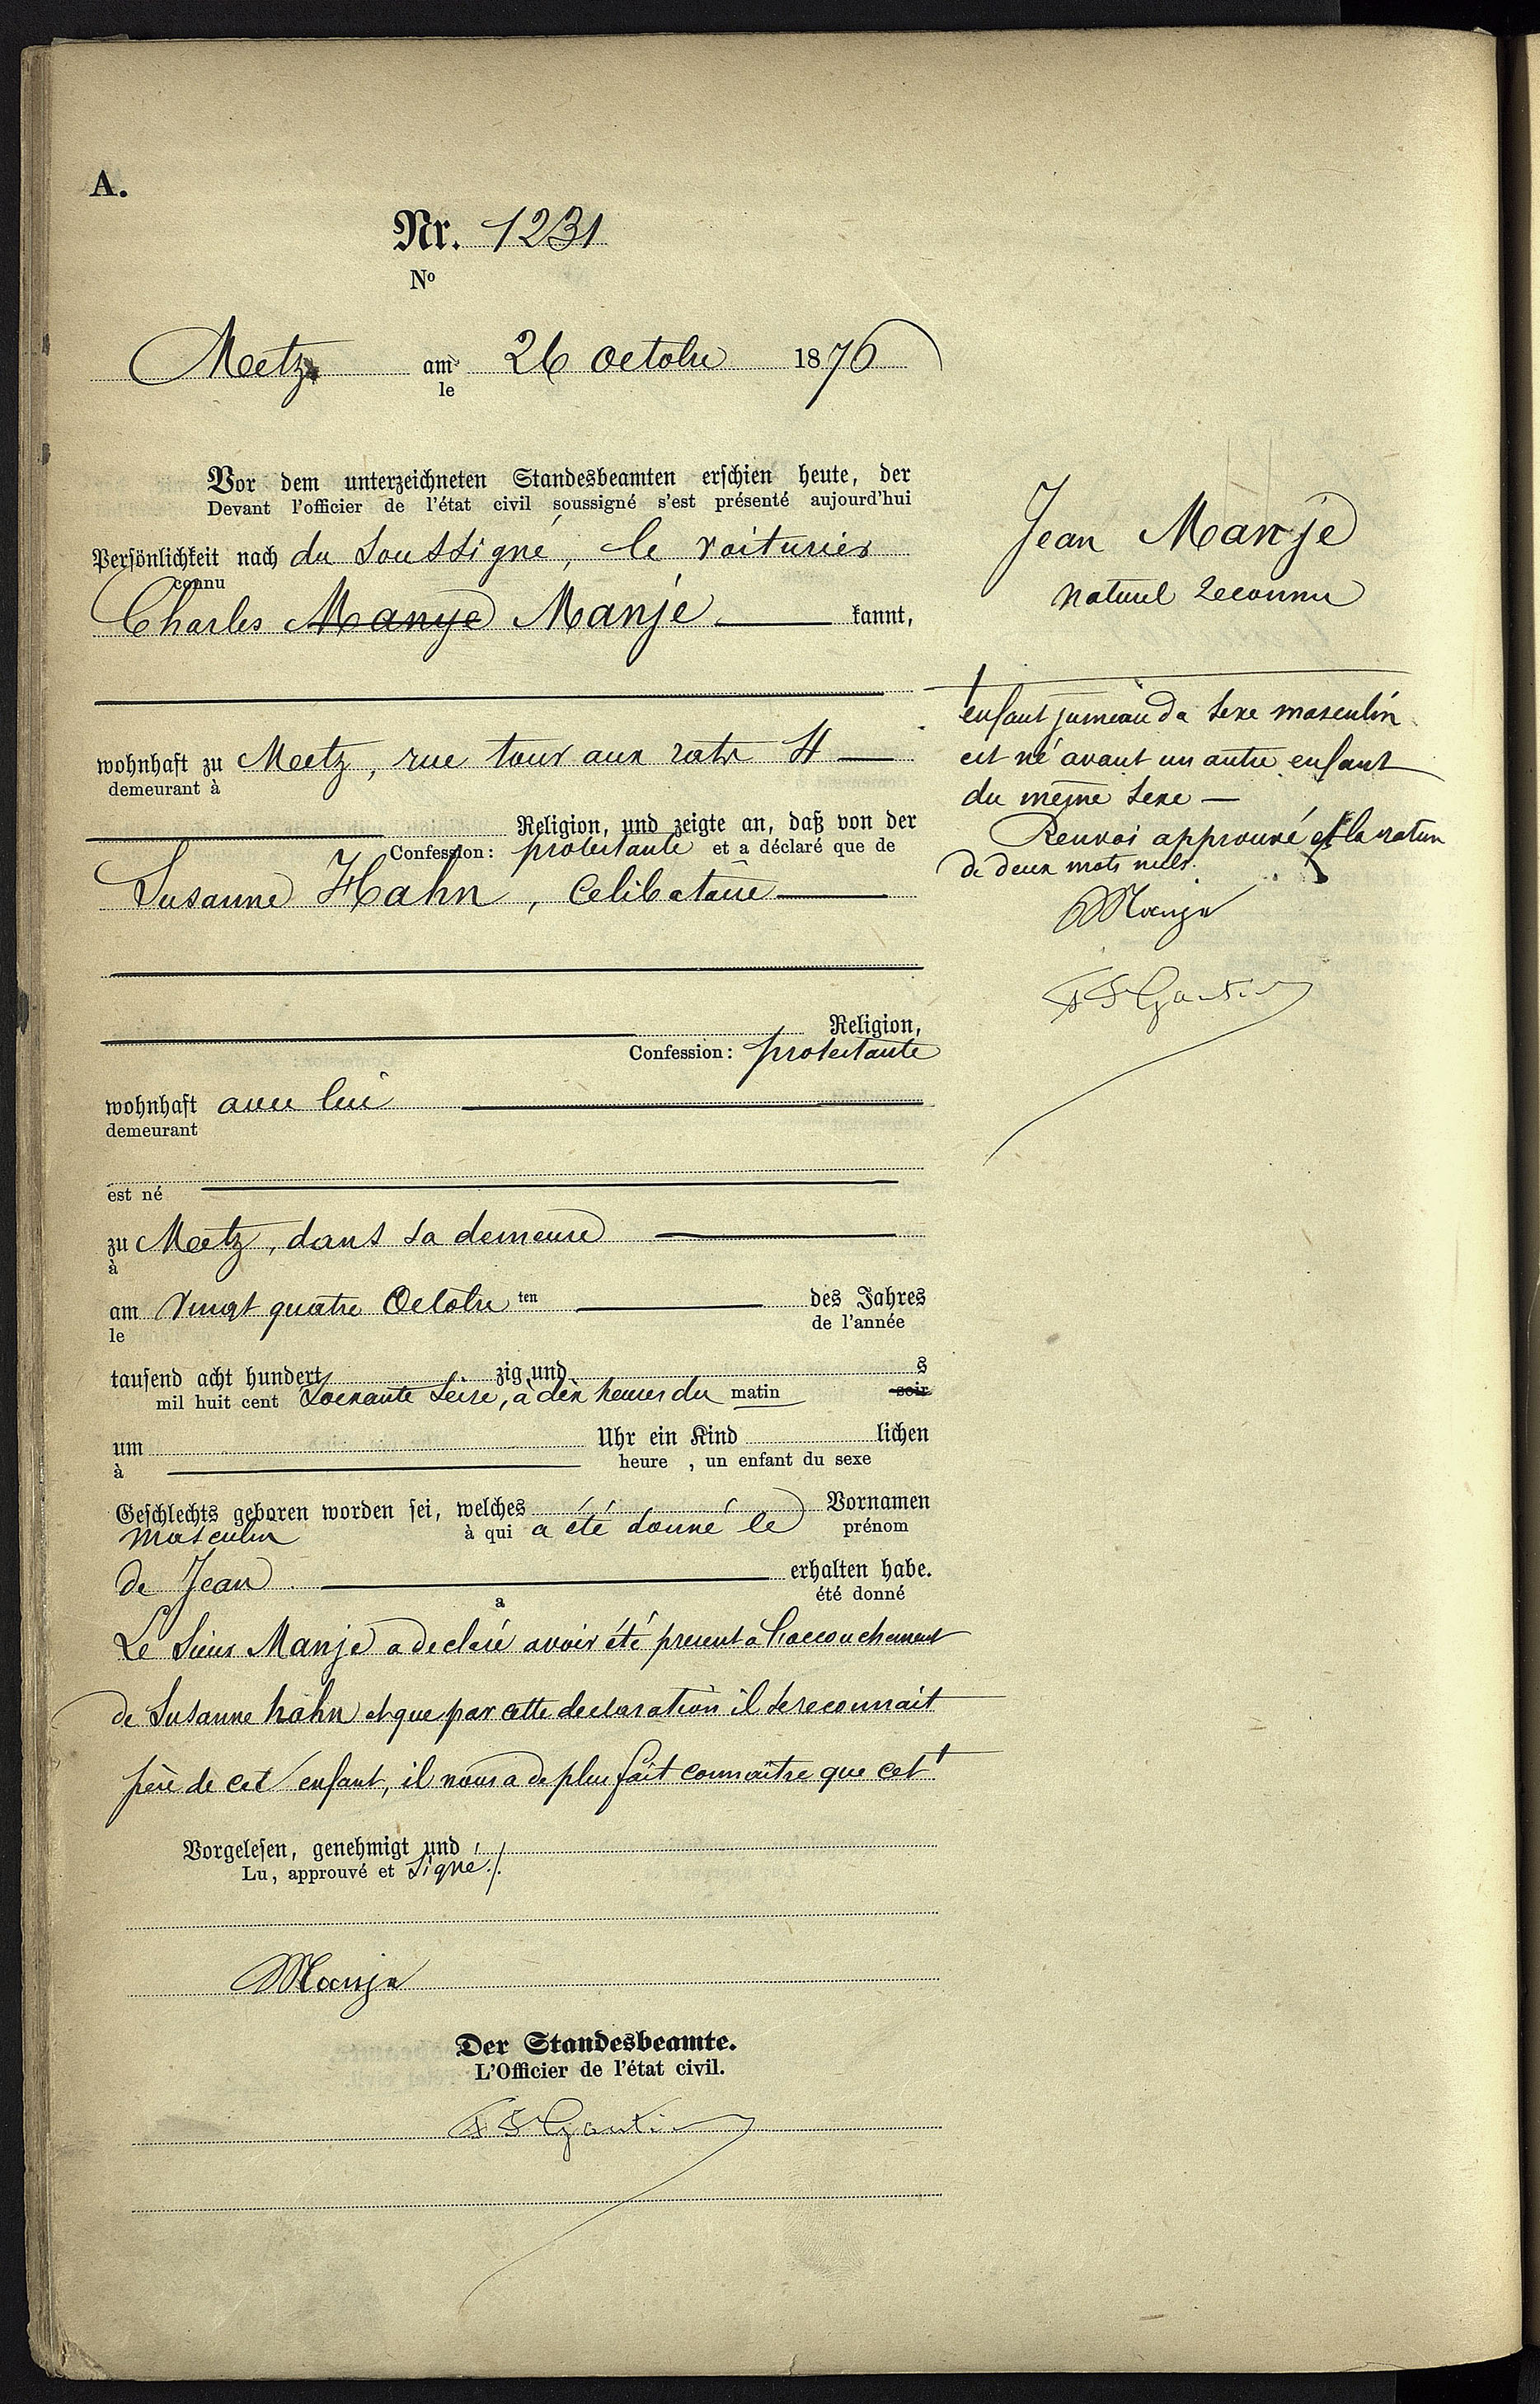 A.
Nr. 1231
No
Metz am 26 octobre 1876
le
Vor dem unterzeichneten Standesbeamten erschien heute, der
Devant l'officier de l'état civil soussigné s'est présenté aujourd'hui
Persönlichkeit nach du Soussigné, le voiturier
connu
Charles Manye Manjé kannt,
wohnhaft zu Metz, rue tour aux rats 4
demeurant à
Religion, und zeigte an, daß von der
Confession: protestante et a déclaré que de
Susanne Hahn, celibataire
Religion,
Confession: protestante
wohnhaft avec lui
demeurant
est né
zu Metz, dans sa demeure
à
am Vingt quatre Octobre ten des Jahres
le de l'année
tausend acht hundert zig und s
mil huit cent Soixante Seize, à dix heures du matin soir
um Uhr ein Kind lichen
à heure , un enfant du sexe
Geschlechts geboren worden sei, welches Vornamen
masculin à qui a été donné le prénom
de Jean erhalten habe.
a été donné
Le Sieur Manjé a declaré avoir été present à l'accouchement
de Susanne hahn et que par cette declaration il se reconnait
père de cet enfant, il nous a de plus fait connaitre que cet †
Vorgelesen, genehmigt und
Lu, approuvé et Signé./.
Manje
Der Standesbeamte.
L'Officier de l'état civil.
Jean Manjé
naturel reconnu
† enfant jumeau du sexe masculin
est né avant un autre enfant
du même sexe —
Renvoi approuvé et la rature
de deux mots nuls.
Manje